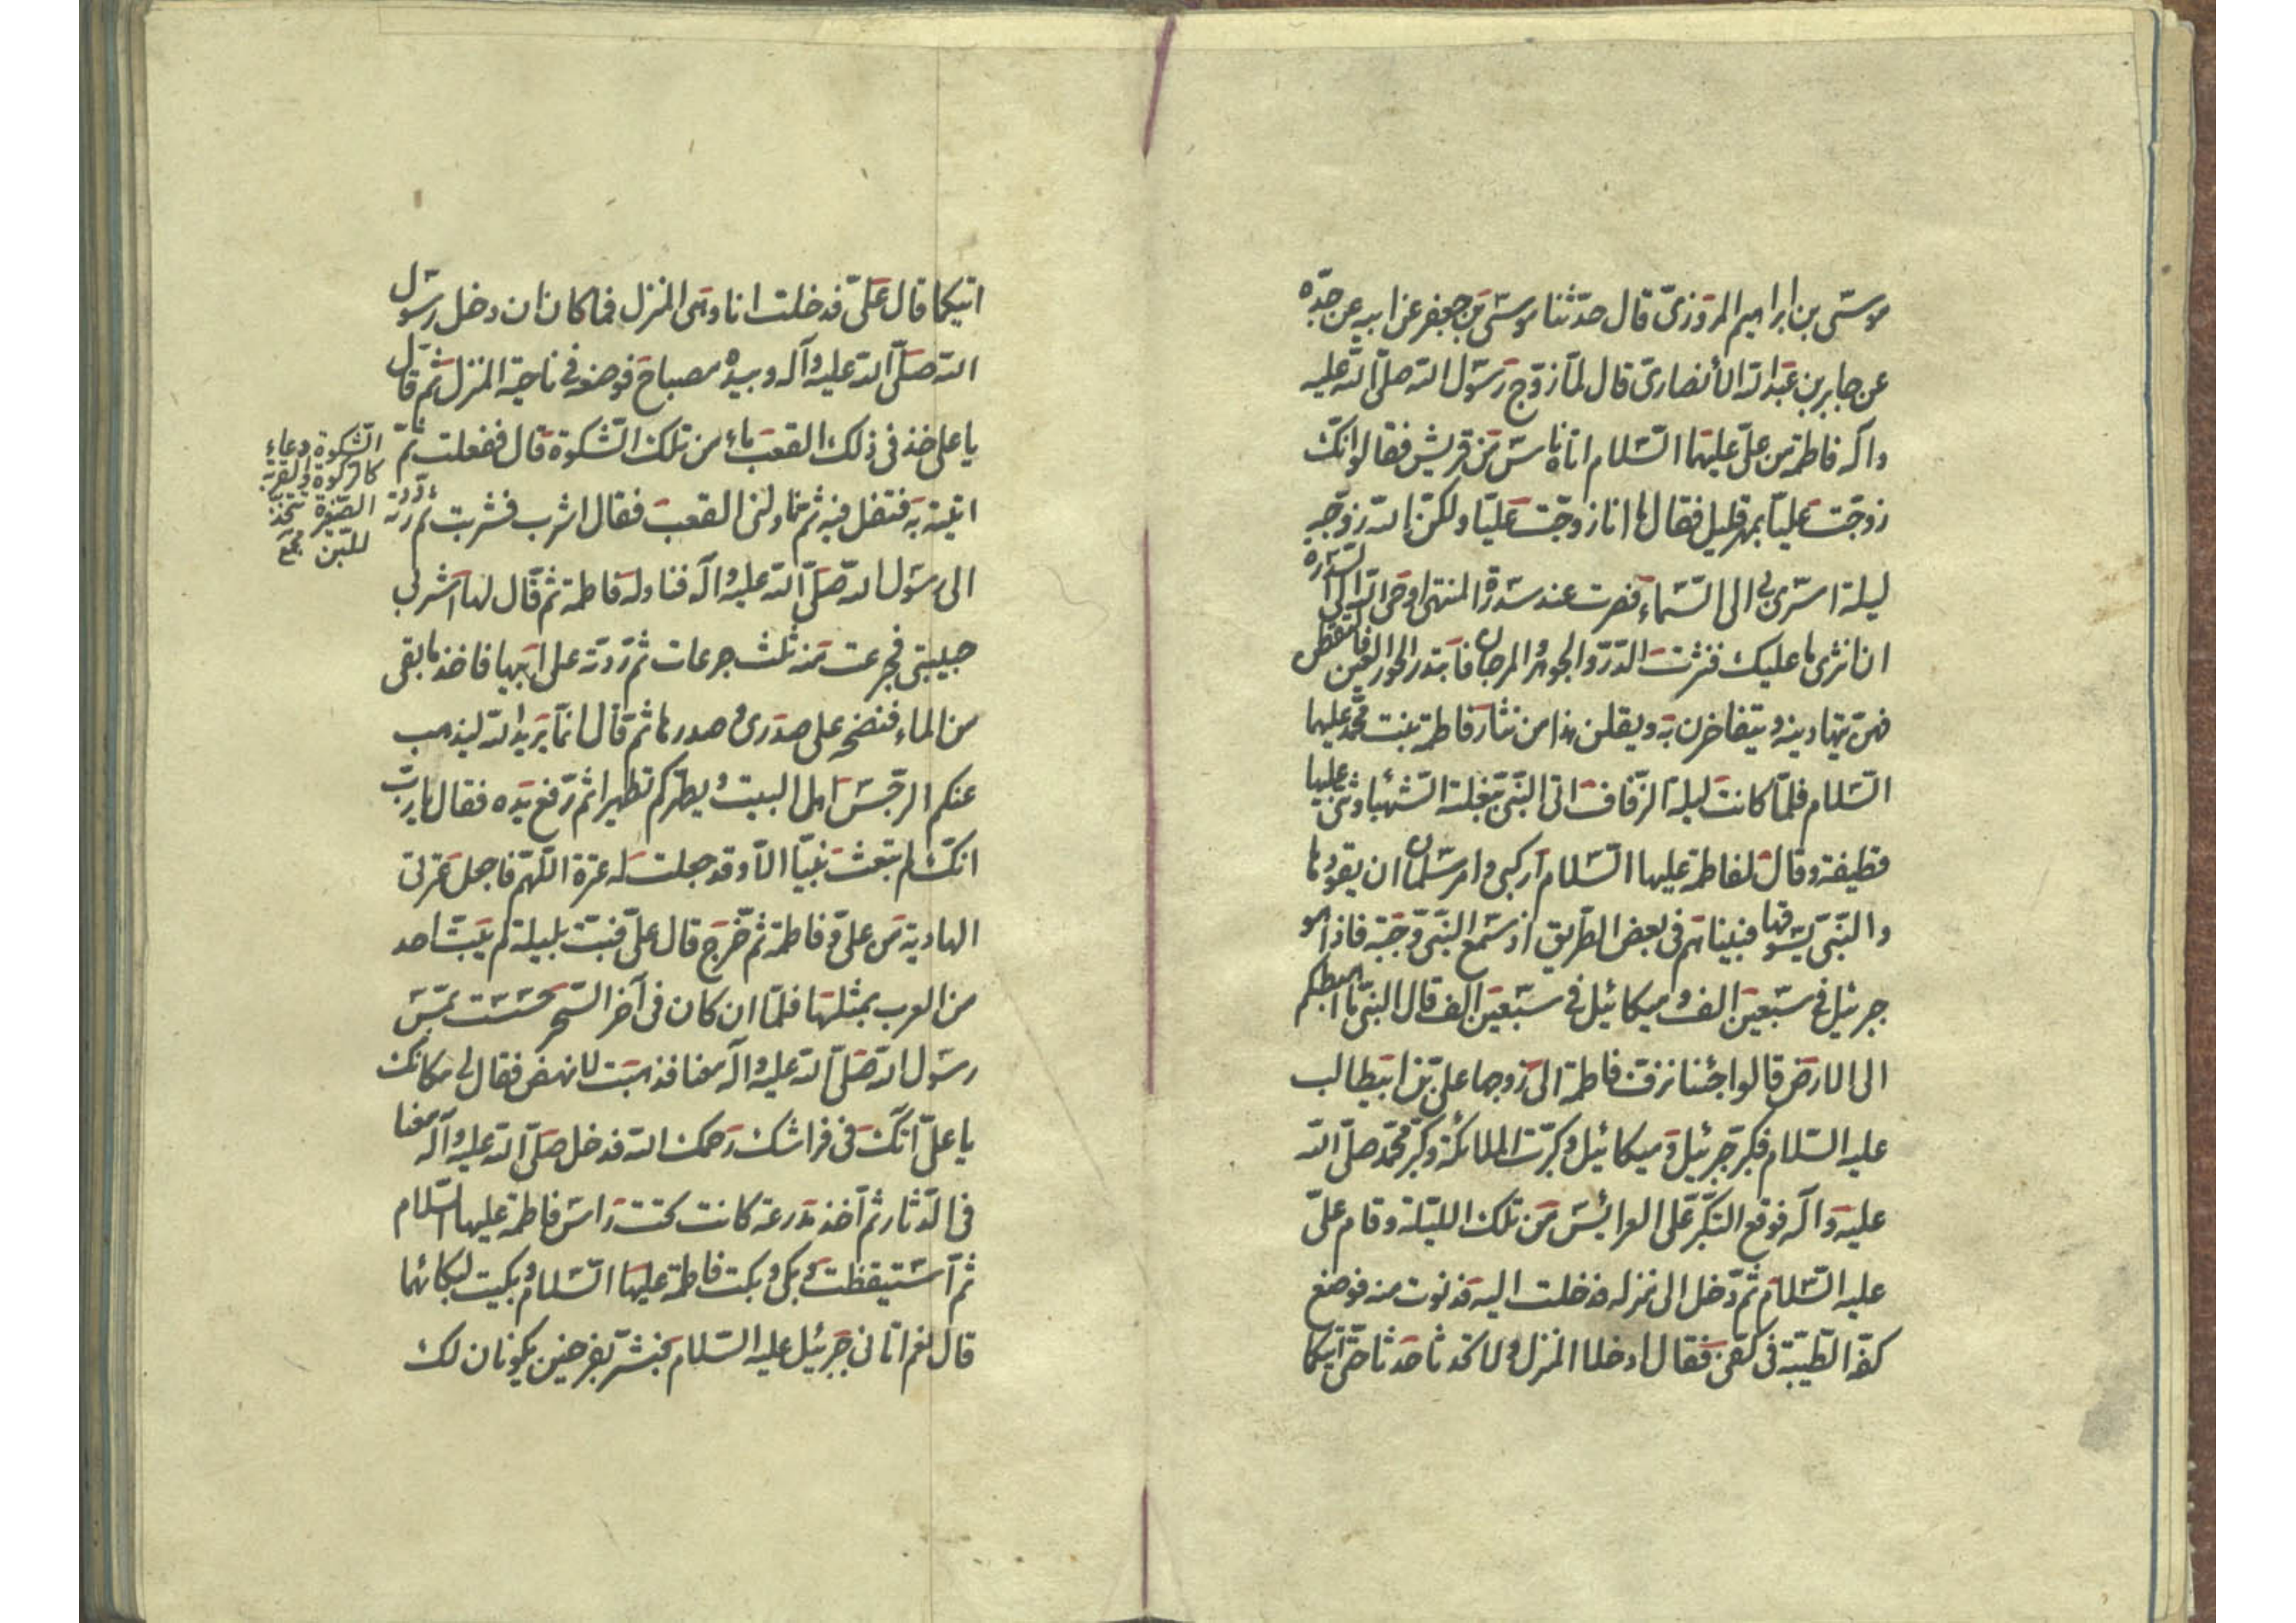 موسى بن ابراهيم المروزى قال حدثنا موسى بن جعفر عن ابيه عن جدّه
عن جابر بن عبد الله الأنصارى قال لما زوّج رسول الله صلّى الله عليه
وآله فاطمة من علىّ عليهما السّلام اتاه ناس من قريش فقالوا انّك
زوّجت عليّا بمهر قليل فقال ما انا زوّجت عليّا ولكنّ الله زوّجه
ليلة اسرى بى الى السّماء فصرت عند سدرة المنتهى اوحى الله الى السدرة
ان انثرى ما عليك فنثرت الدّرّ والجوهر والمرجان فابتدر الحور العين فالتقطن
فهنّ يتهادينه ويتفاخرن به ويقلن هذا من نثار فاطمة بنت محمّد عليهما
السّلام فلمّا كانت ليلة الزّفاف اتى النّبىّ ببغلته الشّهبا وثنى عليها
قطيفة وقال لفاطمة عليها السّلام اركبى وامر سلمان ان يقودها
والنّبىّ يسوقها فبيناهم فى بعض الطّريق اذ سمع النّبىّ وجبة فاذا هو
جبرئيل فى سبعين الف وميكائيل فى سبعين الف قال النبىّ ما اهبطكم
الى الارض قالوا جئنا نزفّ فاطمة الى زوجها علىّ بن ابيطالب
عليه السّلام فكبّر جبرئيل وميكائيل وكبّرت الملائكة وكبّر محمّد صلّى الله
عليه وآله فوقع التكبير على العرائس من تلك الليلة وقام علىّ
عليه السّلام ثم دخل الى منزله فدخلت اليه فدنوت منه فوضع
كفّ الطّيبة فى كفّى فقال ادخلا المنزل ولا تحدثا حدثا حتّى آتيكما
اتيكما قال علىّ فدخلت انا وهى المنزل فما كان ان دخل رسول
الله صلّى الله عليه وآله وبيده مصباح فوضعه فى ناحية المنزل ثم قال
يا على خذ فى ذلك القعب ماء من تلك الشكوة قال ففعلت ثم
اتيته به فتفل فيه ثم ناولنى القعب فقال اشرب فشربت ثم رددته
الى رسول الله صلّى الله عليه وآله فناوله فاطمة ثم قال لها اشربى
حبيبتى فجرعت منه ثلث جرعات ثم ردّته على ابيها فاخذ ما بقى
من الماء فنضحه على صدرى وصدرها ثم قال انما يريد الله ليذهب
عنكم الرجس اهل البيت ويطهركم تطهيرا ثم رفع يده فقال يا ربّ
انّك لم تبعث نبيّا الّا وقد جعلت له عترة اللّهمّ فاجعل عترتى
الهادية من علىّ وفاطمة ثم خرج قال علىّ فبتّ بليلة لم يبت احد
من العرب بمثلها فلمّا ان كان فى آخر السّحر حسست بحسّ
رسول الله صلّى الله عليه وآله معنا فذهبت لانهض فقال لى مكانك
يا علىّ اتيتك فى فراشك رحمك الله فدخل صلّى الله عليه وآله معنا
فى الدّثار ثم اخذ مدرعة كانت تحت راس فاطمة عليها السّلام
ثم استيقظت وبكى وبكت فاطمة عليها السّلام وبكيت لبكائهما
قال نعم اتانى جبرئيل عليه السّلام فبشّر بفرخين يكونان لك
الشّكوة وعاء
كالركوة والقربة
الصّغيرة تتخذ
للّبن مجمع